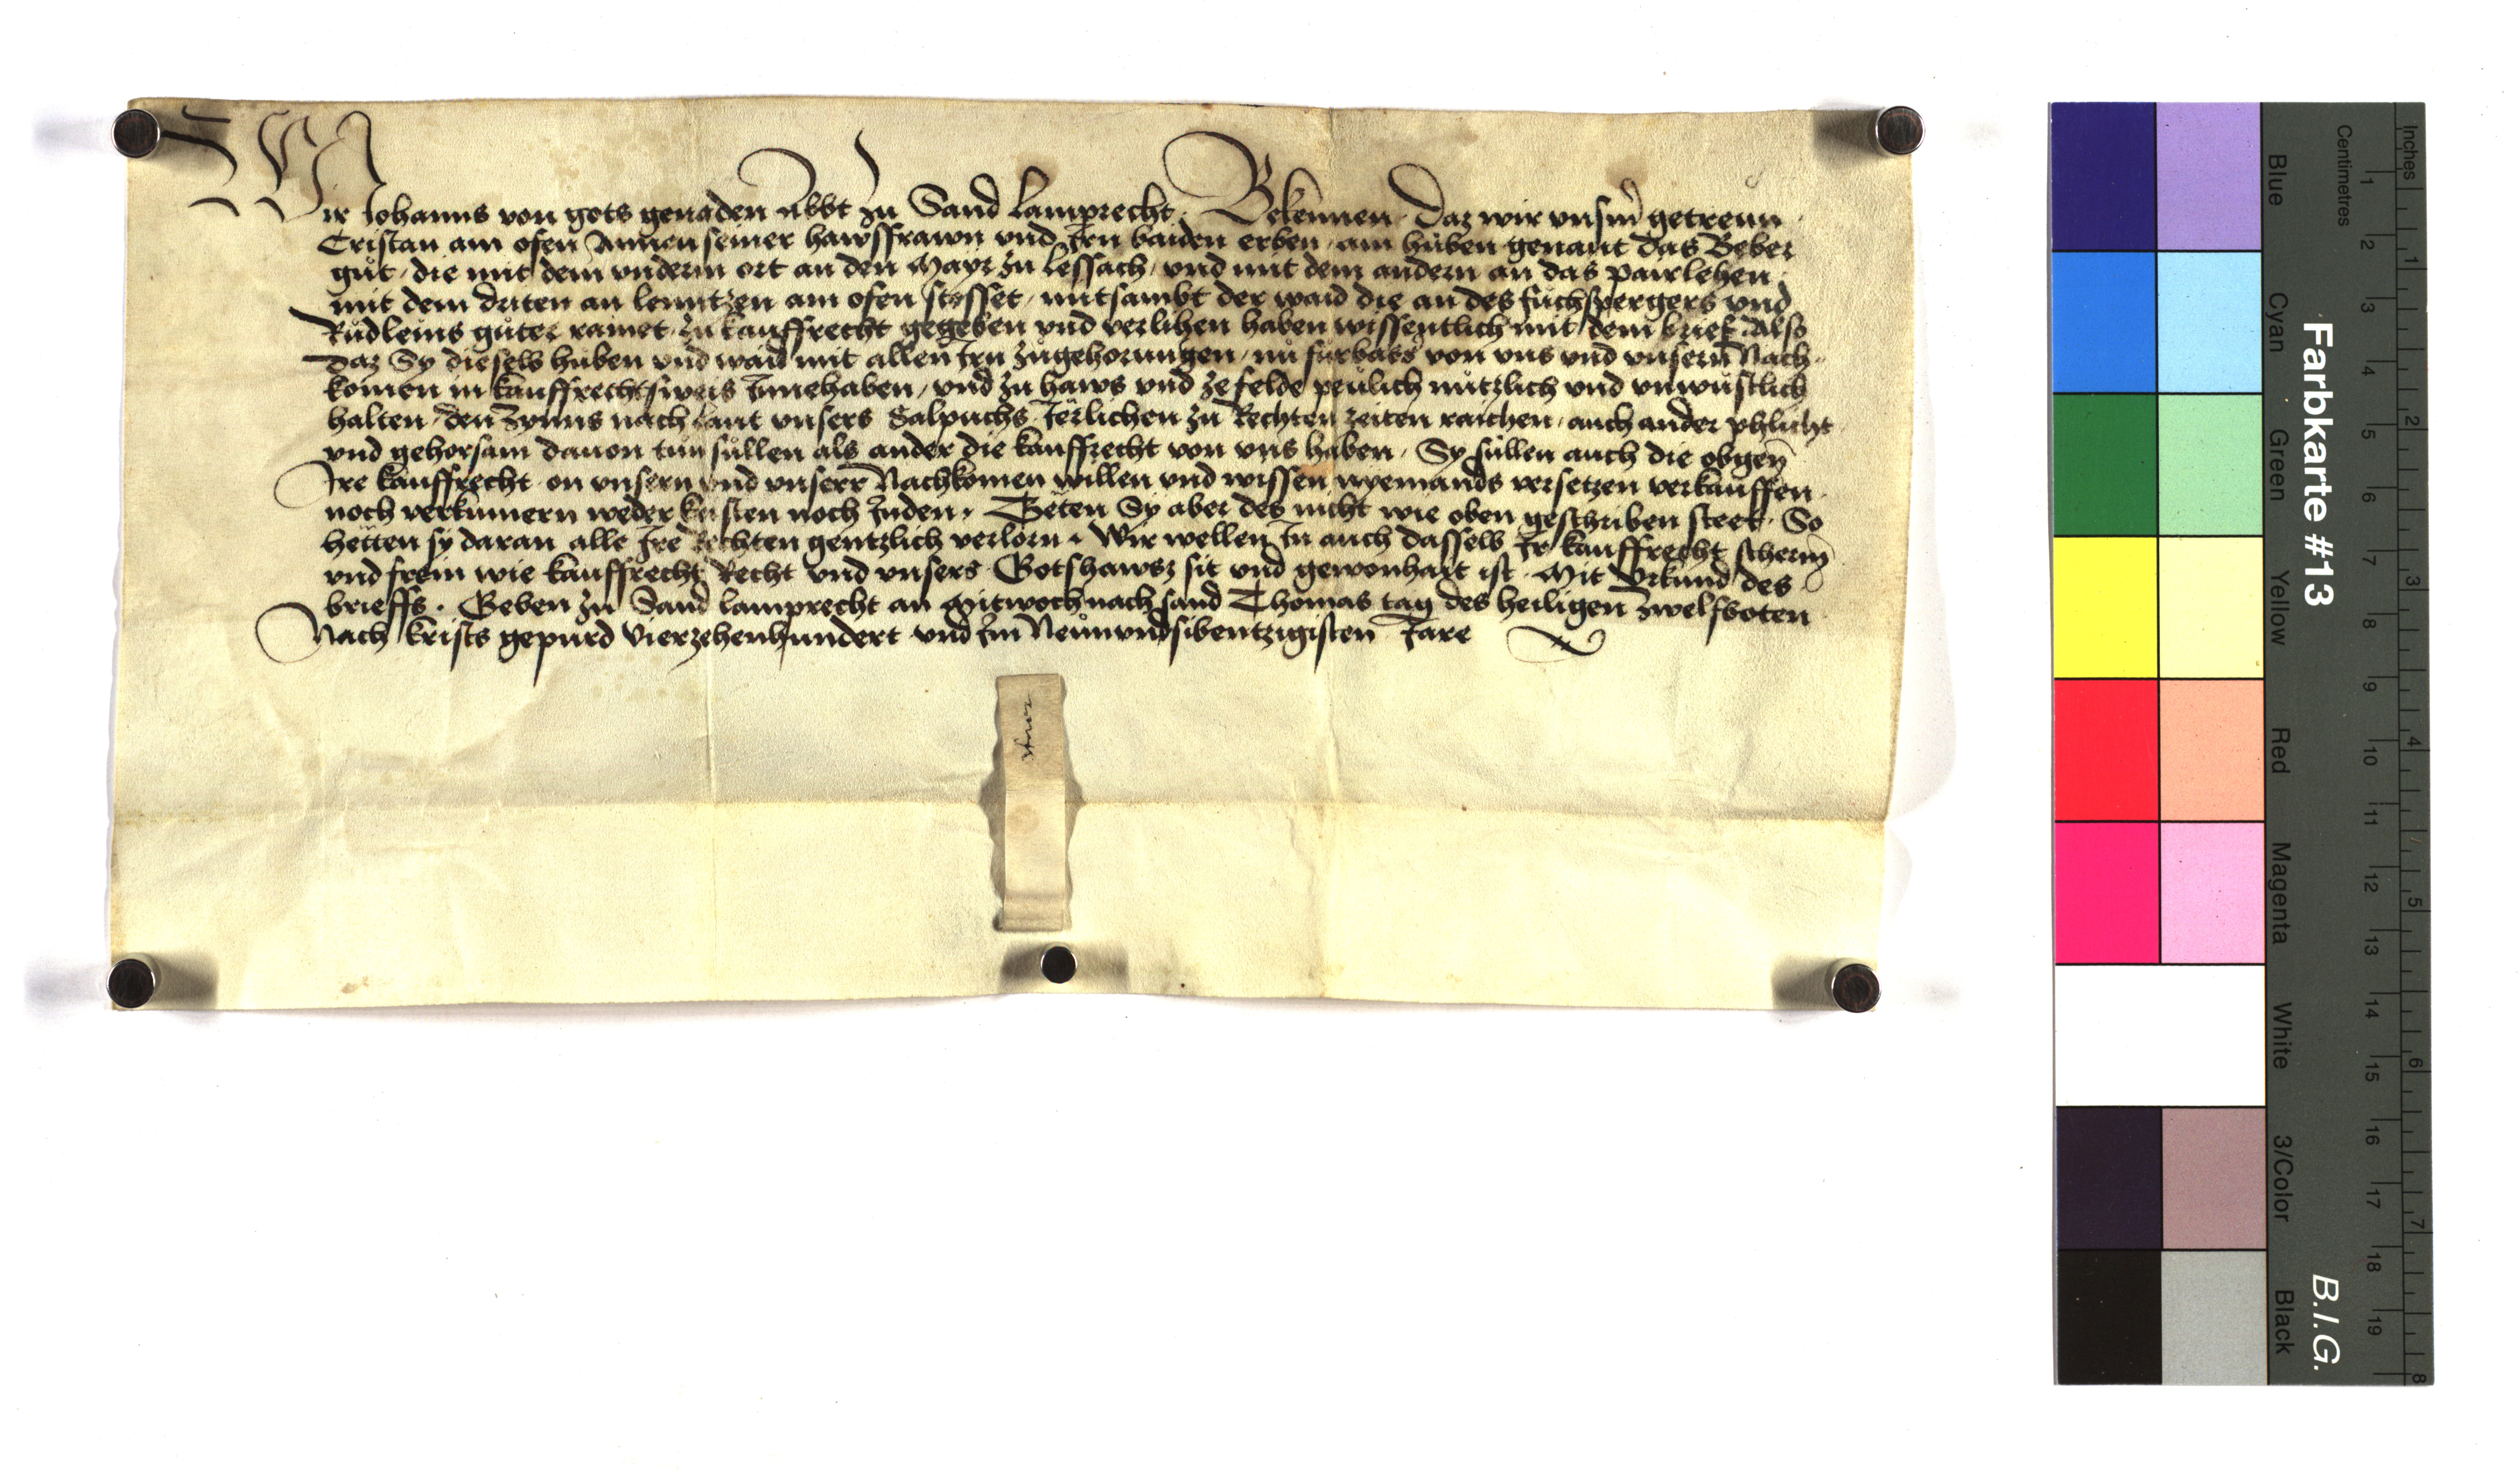 Wir Johanns von gots genaden Abbt zu Sand Lamprecht. Bekennen. Daz wir vnserm getreun
Cristan am ofen Annen seiner hawsffrawn vnd Irn baiden erben, ain hůben genant das Beber
gůt, die mit dem vnderm ort an den Mayr zu Lessach, vnd mit dem andern an das pawrlehen
mit dem dritten an lenntzen am ofen stosset, mitsambt der waid die an des fuchspergers vnd
Rudleins gůter rainet, zu kauffrecht gegeben vnd verlihen haben wissentlich mit dem brief. Also
daz Sy dieselb hůben vnd waid mit allen Irn zůgehorungen, nu fůrbass von vns vnd vnsern Nach
komen in kauffrechtsweis Innehaben, vnd zu haws vnd ze felde peulich nutzlich vnd vnwustlich
halten, den Zynns nach laut vnsers Salpuchs Jerlichen zu Rechten zeiten raichen, auch ander phlicht
vnd gehorsam dauon tun sullen als ander die kauffrecht von vns haben. Sy sullen auch die obgen
Ire kauffrecht on vnsern vnd vnserr Nachkomen willen vnd wissen nyemands versetzen verkauffen
noch verkumern weder kristen noch Juden. Teten Sy aber des nicht wie oben geschriben steet. So
hetten sy daran alle Ire Rechten gentzlich verlorn. Wir wellen In auch dasselb Ir kauffrecht scherm
vnd frein wie kauffrecht Recht vnd vnsers Gotshawsz sit vnd gewonhait ist. Mit Vrkund des
brieffs. Geben zu Sand lamprecht an Mitwoch nach sand Thomas tag des heiligen zwelfboten
Nach Krists gepurd Vierzehenhundert vnd Im Newnvndsibentzigisten Jare
Farbkarte #13
B.I.G.
Inches
Centimetres
Blue
Cyan
Green
Yellow
Red
Magenta
White
3/Color
Black
1 2 3 4 5 6 7 8 9 10 11 12 13 14 15 16 17 18 19
1 2 3 4 5 6 7 8